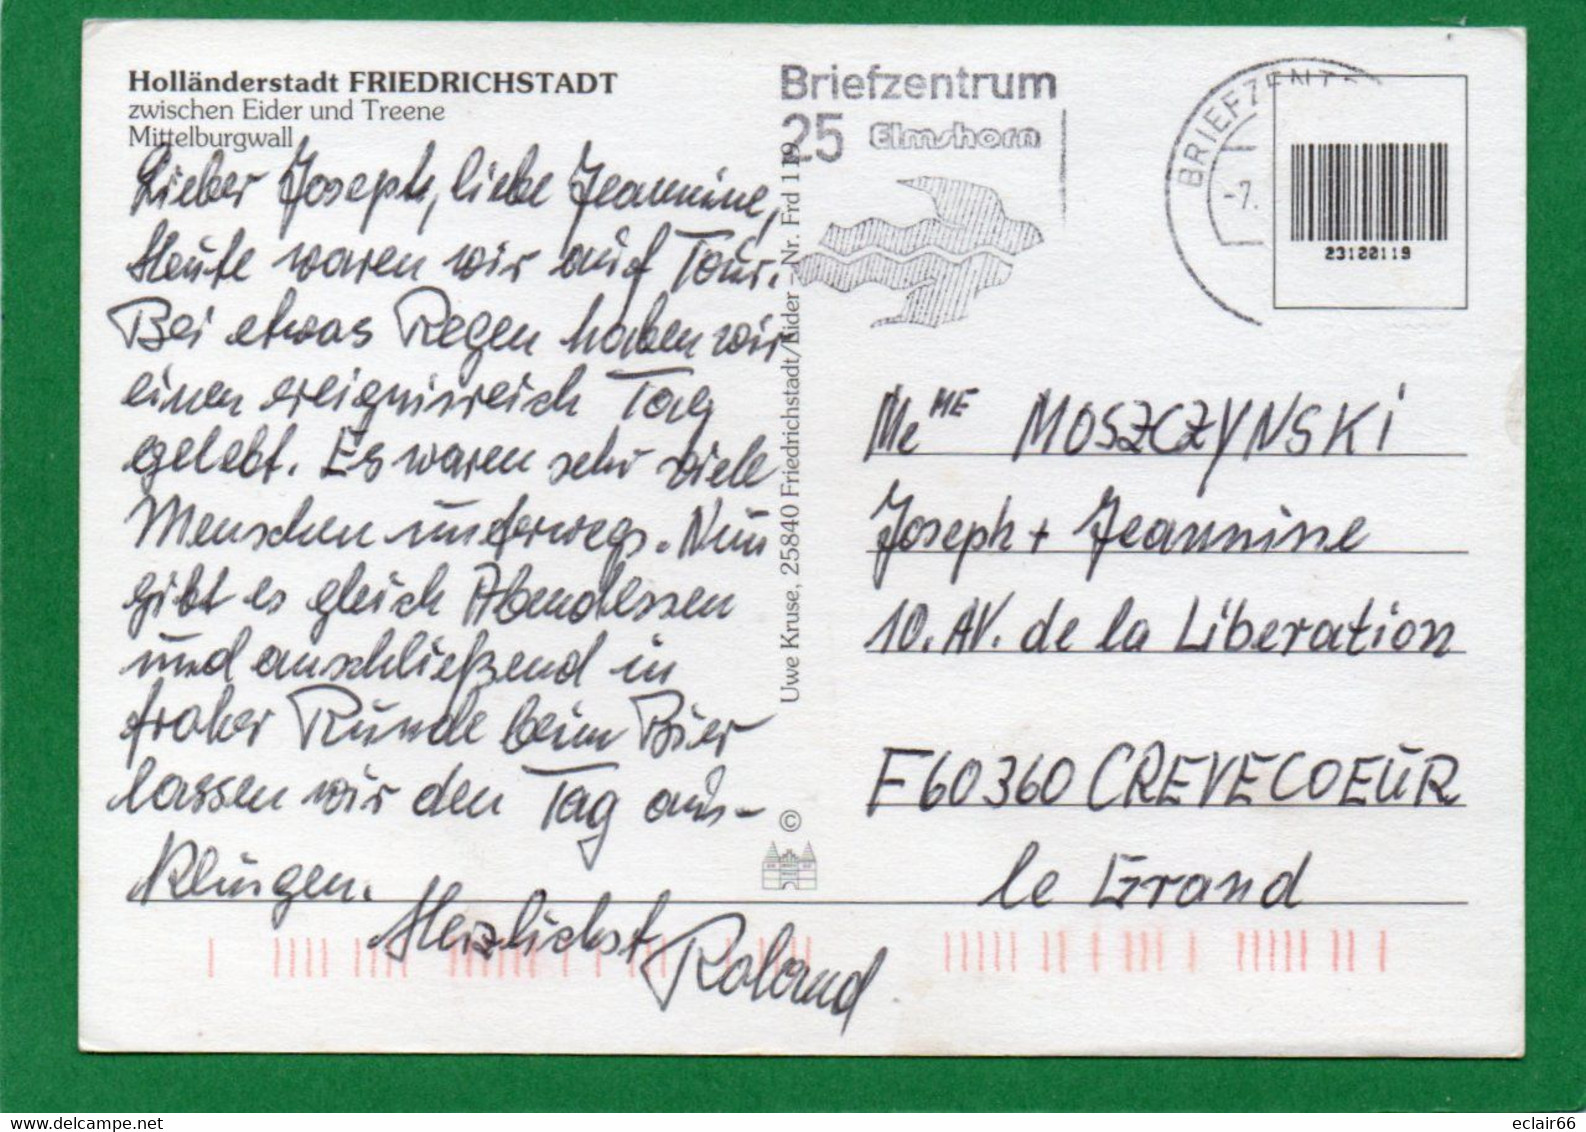 Holländerstadt FRIEDRICHSTADT
zwischen Eider und Treene
Mittelburgwall
Lieber Joseph, liebe Jeannine,
Heute waren wir auf Tour.
Bei etwas Regen haben wir
einen ereignisreich Tag
gelebt. Es waren sehr viele
Menschen unterwegs. Nun
gibt es gleich Abendessen
und anschließend in
froher Runde beim Bier
lassen wir den Tag aus-
klingen.
Herzlichst Roland
Uwe Kruse, 25840 Friedrichstadt/Eider - Nr. Frd 119
©
Briefzentrum
25 Elmshorn
BRIEFZENT
-7.
23120119
Me ME MOSZCZYNSKI
Joseph + Jeannine
10. AV. de la Liberation
F60360 CREVECOEUR
le Grand
www.delcampe.net
eclair66